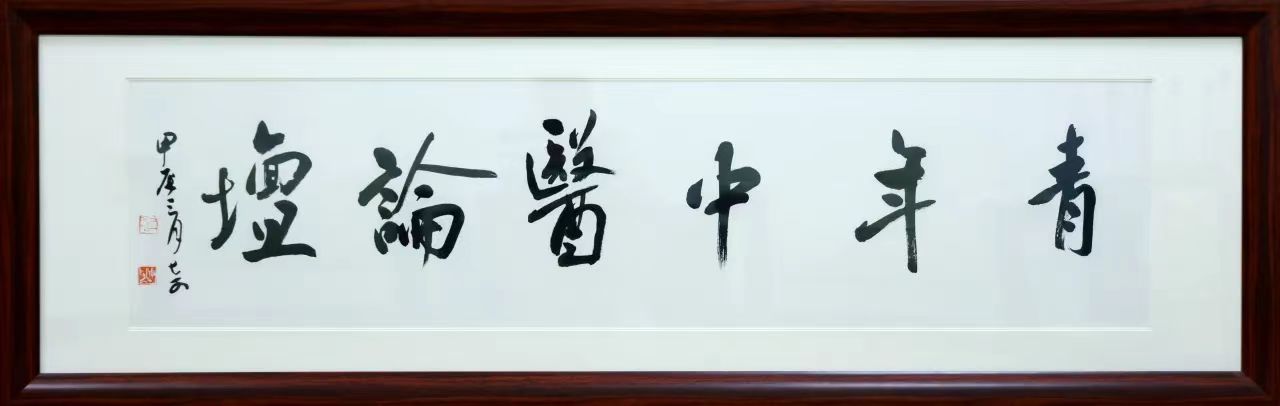 青年中醫論壇
甲辰三月